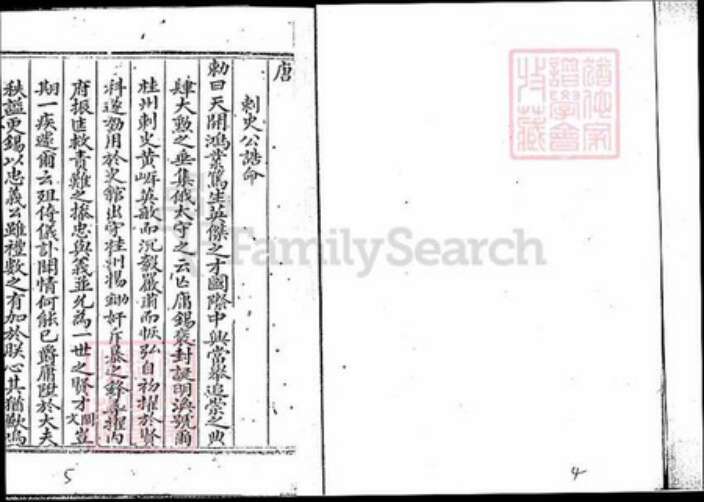 唐
刺史公誥命
勅曰天開鴻業篤生英傑之才國際中興當舉追崇之典
肆大勲之垂集俄太守之云亡庸錫褒封誕明渙號爾
桂州刺史黃岍英敏而沉毅嚴肅而恢弘自初擢於賢
科遂效用於史館出守桂州揚鋤奸斥暴之
府振匡救責難之操忠與義並允為一世之賢才豈
期一疾遽爾云殂倚儀訃聞情何能已爵庸陞於大夫
秩謚更錫以忠義公雖禮數之有加於朕心其猶歉焉
譜學會
藏
FamilySearch
5
4